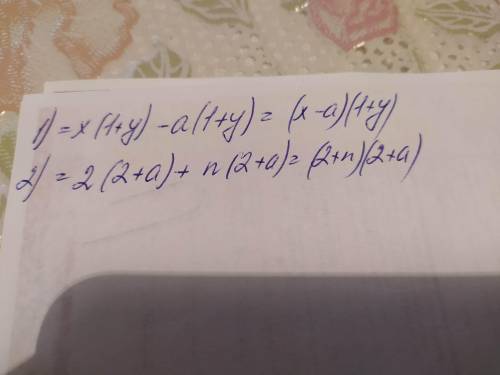 1) = x(1+y) - a(1+y) = (x-a)(1+y)
2) = 2(2+a) + n(2+a) = (2+n)(2+a)